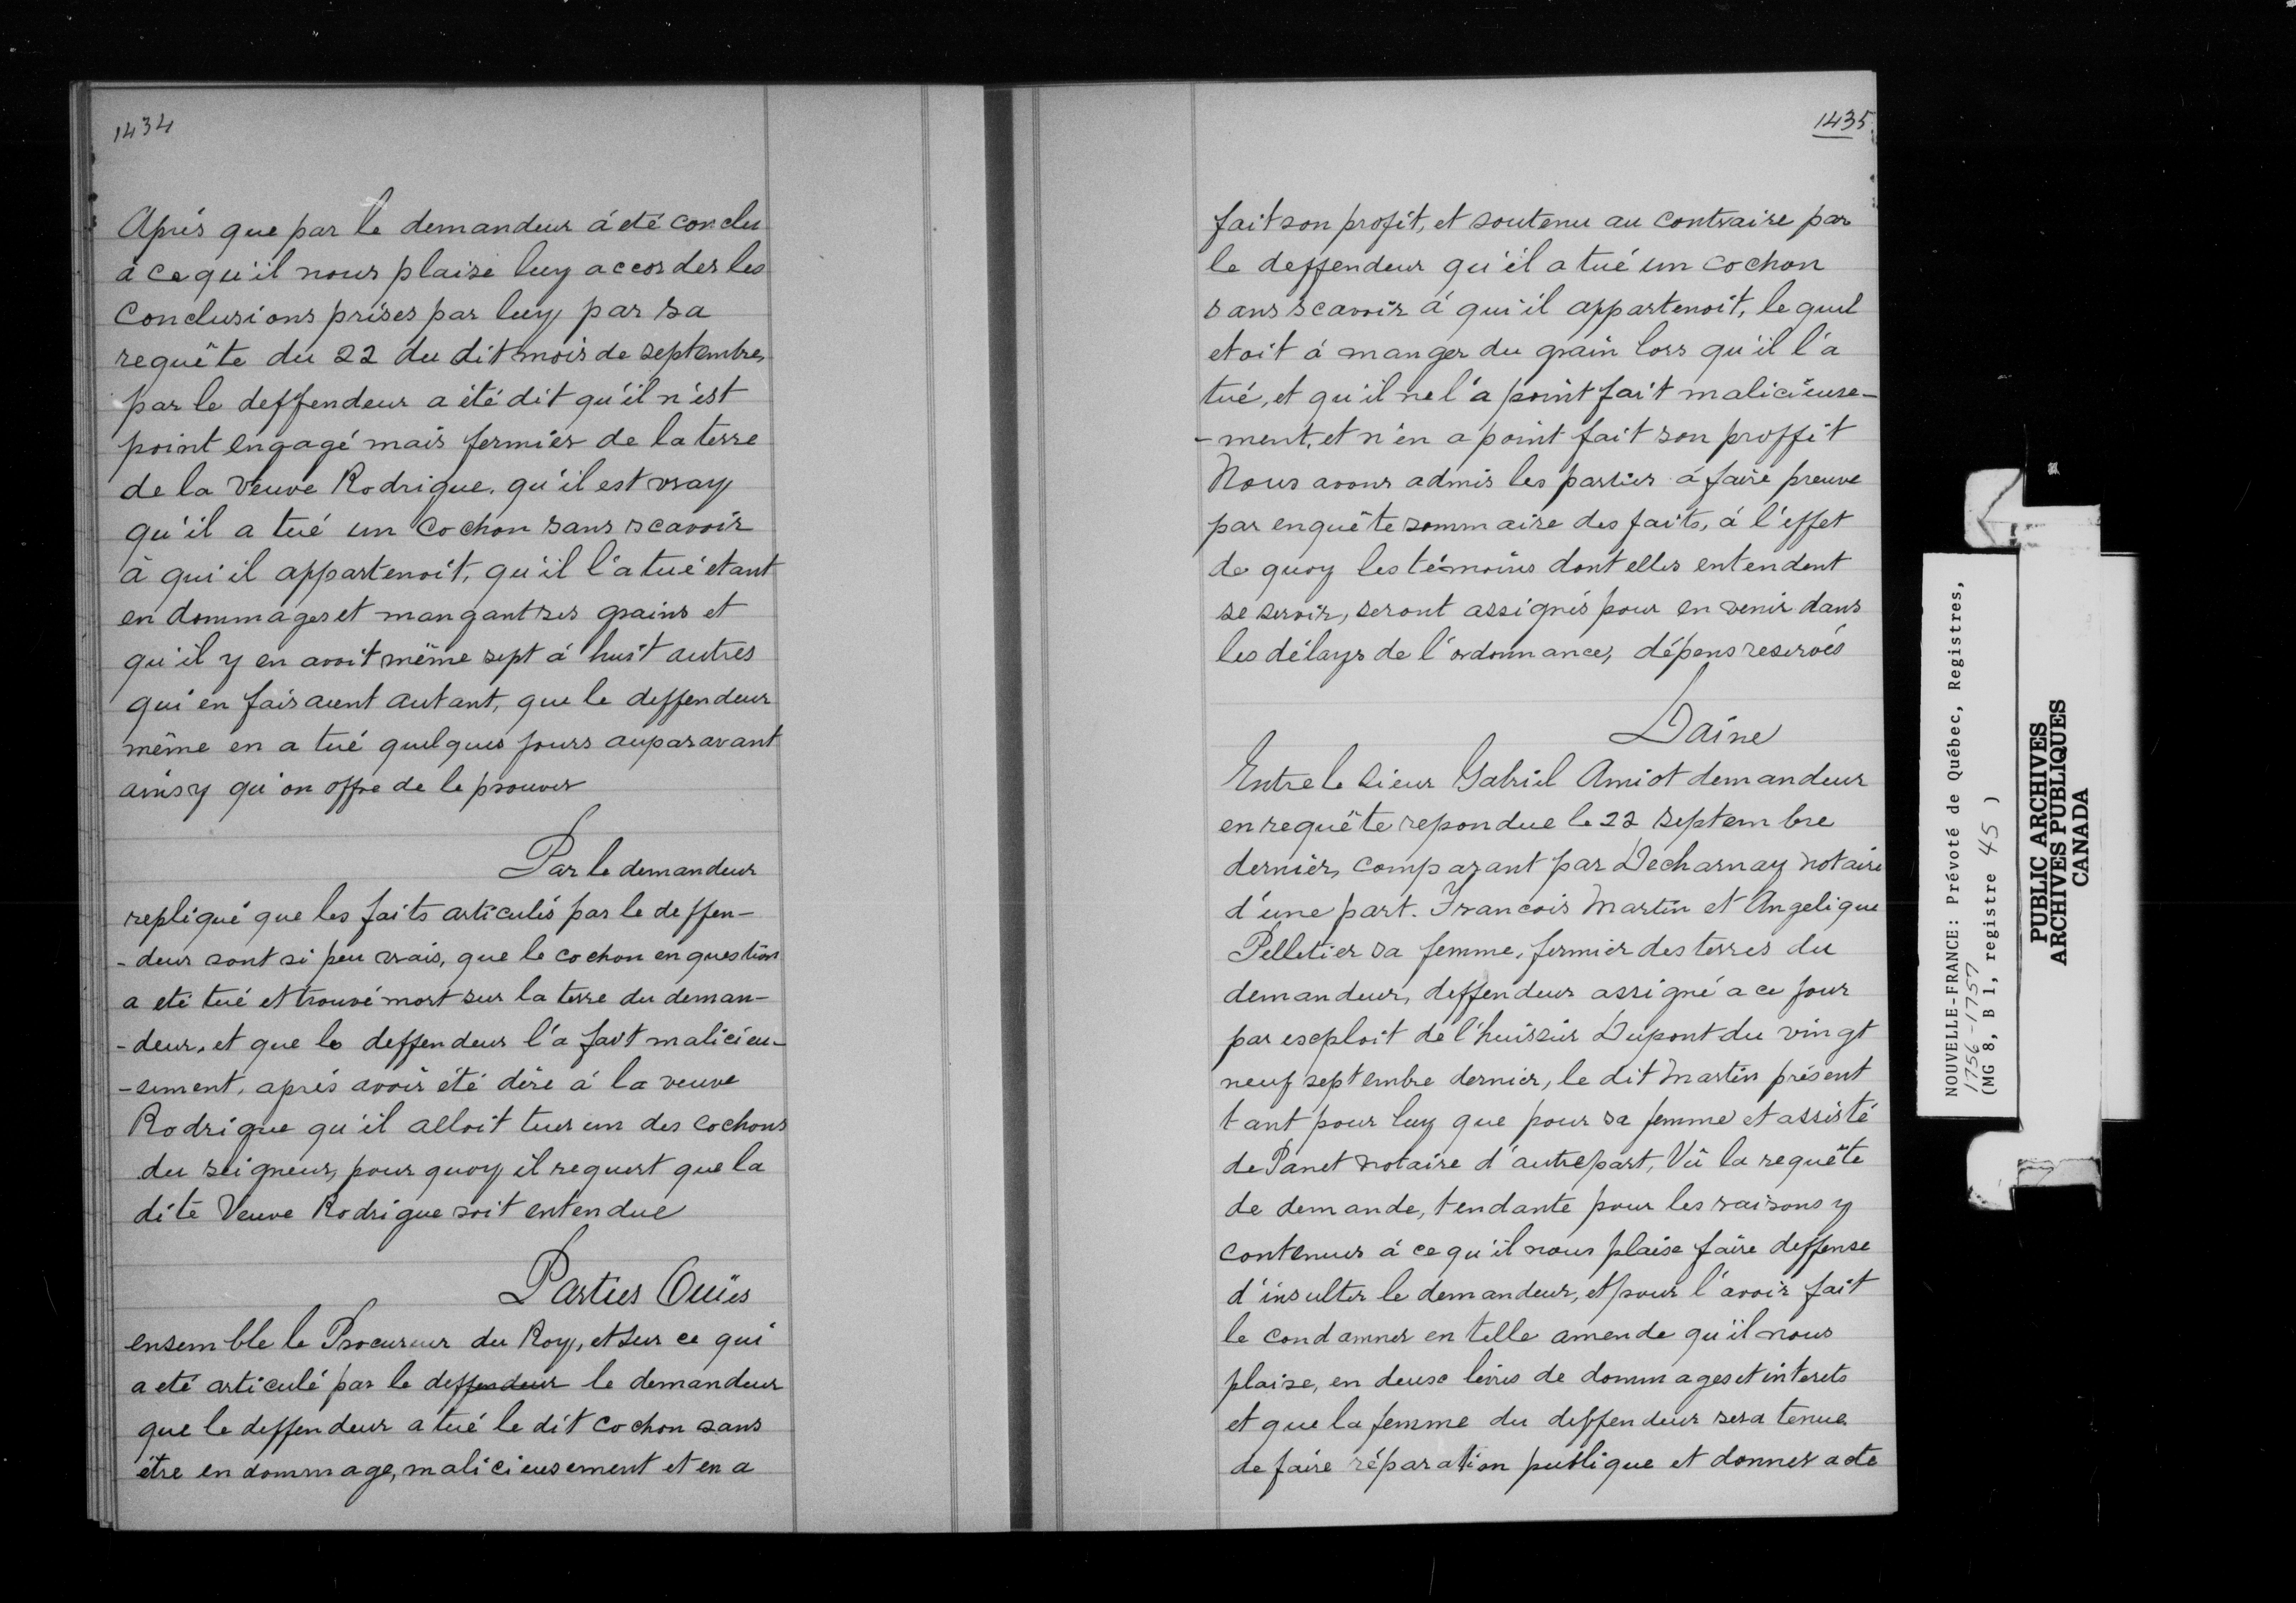 1434
Aprés que par le demandeur á eté conclu
á ce qu'il nous plaise luy accorder les
Conclusions prises par luy par sa
requête du 22 du dit mois de septembre,
par le deffendeur a été dit qu'il n'est
point engagé mais fermier de la terre
de la Veuve Rodrigue, qu'il est vray
qu'il a tué un Cochon sans scavoir
à qui il appartenoit, qu'il l'a tué etant
en dommages et mangant ses grains et
qu'il y en avoit même sept á huit autres
qui en faisaient autant, que le deffendeur
même en a tué quelques jours auparavant
ainsy qu'on offre de le prouver
Par le demandeur
repliqué que les faits articulés par le deffen-
-deur sont si peu vrais, que le cochon en question
a eté tué et trouvé mort sur la terre du deman-
-deur, et que le deffendeur l'a fait malicieu-
-sement, aprés avoir été dire á la veuve
Rodrigue qu'il alloit tuer un des cochons
du seigneur, pour quoy il requert que la
dite Veuve Rodrigue soit entendue
Parties Ouïes
ensemble le Procureur du Roy, et sur ce qui
a eté articulé par le deffendeur le demandeur
que le deffendeur a tué le dit cochon sans
être en dommage, malicieusement et en a
1435
fait son profit, et soutenu au contraire par
le deffendeur qu'il a tué un cochon
sans scavoir á qui il appartenoit, le quel
etoit á manger du grain lors qu'il l'a
tué, et qu'il ne l'a point fait malicieuse-
-ment, et n'en a point fait son proffit
Nous avons admis les parties á faire preuve
par enquête sommaire des faits, á l'effet
de quoy les témoins dont elles entendent
se servir, seront assignés pour en venir dans
les délays de l'ordonnance, dépens reservés
Daine
Entre le Sieur Gabriel Amiot demandeur
en requête repondue le 22 septembre
dernier, comparant par Decharnay notaire
d'une part. Francois Martin et Angelique
Pelletier sa femme, fermier des terres du
demandeur, deffendeur assigné a ce jour
par exploit de l'huissier Dupont du vingt
neuf septembre dernier, le dit Martin présent
tant pour luy que pour sa femme et assisté
de Panet notaire d'autre part, Vû la requête
de demande, tendante pour les raisons y
contenues á ce qu'il nous plaise faire deffense
d'insulter le demandeur, et pour l'avoir fait
le condamner en telle amende qu'il nous
plaise, en deux livres de dommages et interets
et que la femme du deffendeur sera tenue
de faire réparation publique et donner acte
NOUVELLE-FRANCE: Prévoté de Québec, Registres,
1756-1757
(MG 8, B 1, registre 45 )
PUBLIC ARCHIVES
ARCHIVES PUBLIQUES
CANADA